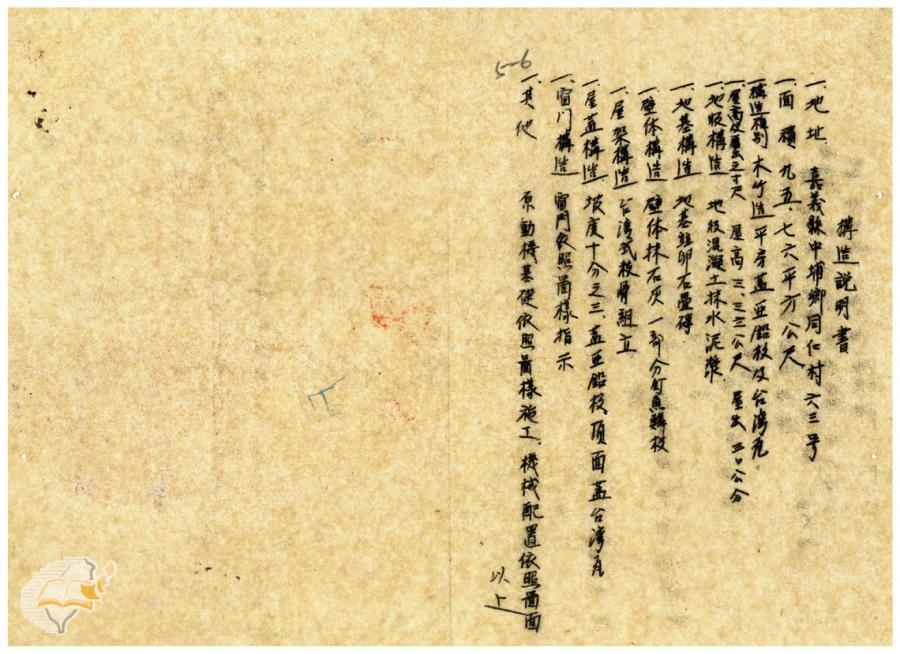 構造說明書
一、地址 嘉義縣中埔鄉同仁村六三号
一、面積 九五、七六平方公尺
一、構造種別 木竹造平房蓋亜鉛板及台湾瓦
一、屋高及屋出之寸尺 屋高三、三三公尺 屋出三〇公分
一、地板構造 地板混凝土抹水泥漿
一、地基構造 地基 卵石疊磚
一、壁体構造 壁体抹石灰一部分釘魚鱗板
一、屋架構造 台湾式板骨組立
一、屋蓋構造 坡度十分之三、蓋亜鉛板頂面蓋台湾瓦
一、窗门構造 窗門依照啚樣指示
一、其他 原動機基礎依照啚樣施工、機械配置依照啚面
以上
5-6